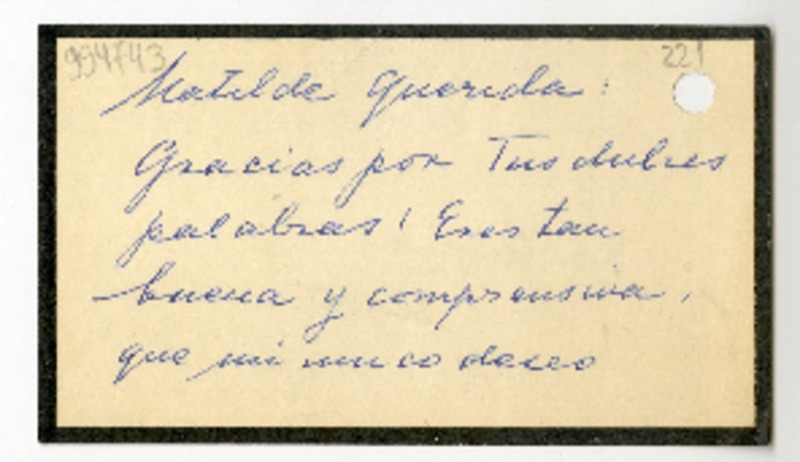 994743
221
Matilde Querida:
Gracias por Tus dulces
palabras! Eres tan
buena y comprensiva,
que mi unico deseo